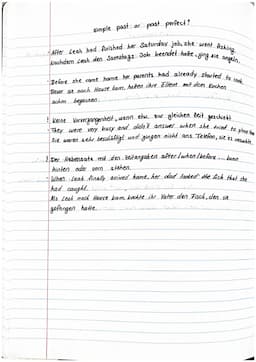 simple past or past perfect?
· After Leah had finished her Saturday job, she went fishing.
Nachdem Leah den Samstags Job beendet hatte, ging sie angeln.
· Before she came home her parents had already started to cook.
Bevor sie nach Hause kam, hatten ihre Eltern mit dem Kochen
schon begonnen.
! Keine Vorvergangenheit, wenn etw. zur gleichen Zeit geschieht.
· They were very busy and didn't answer when she tried to phone them
Sie waren sehr beschäftigt und gingen nicht ans Telefon, als sie es versuchte.
! Der Nebensatz mit den Zeitangaben after/when/before... kann
hinten oder vorn stehen.
· When Leah finally arrived home, her dad cooked the fish that she
had caught.
Als Leah nach Hause kam, kochte ihr Vater den Fisch, den sie
gefangen hatte.